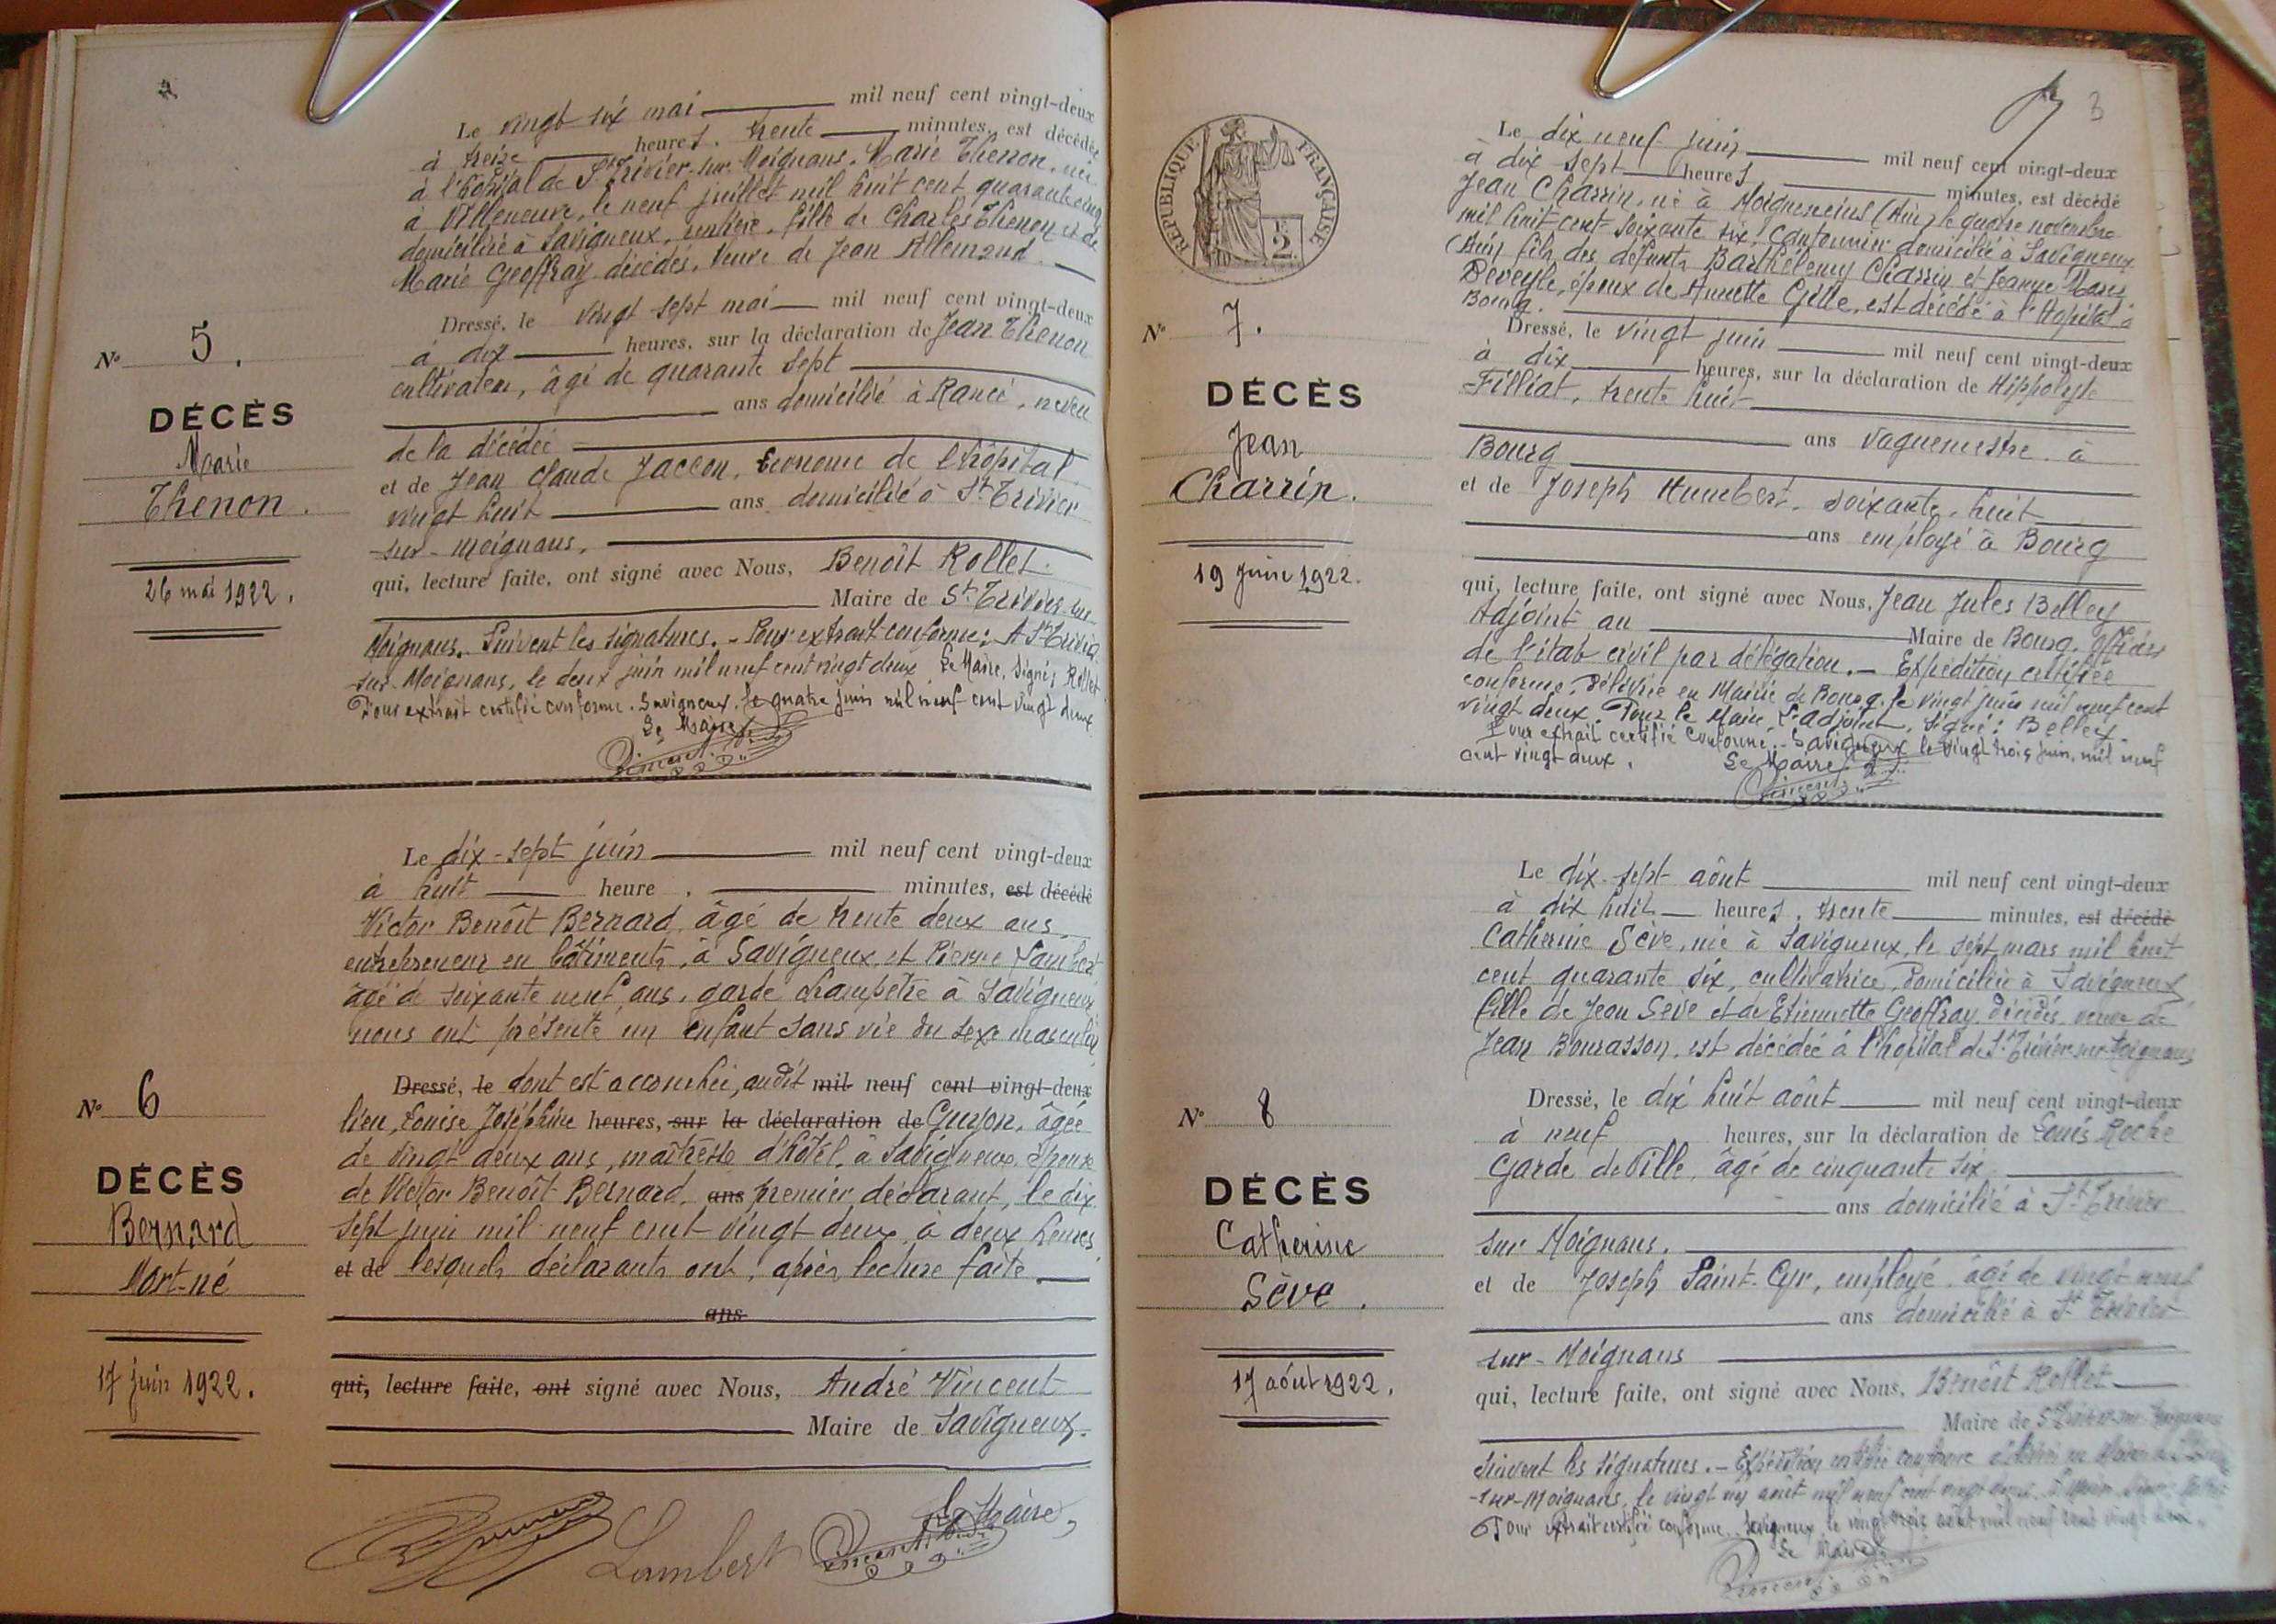 Le vingt six mai mil neuf cent vingt-deux
à treize heures, trente minutes, est décédée
à l'hôpital de St Trivier-sur-Moignans, Marie Thenon, née
à Villeneuve, le neuf juillet mil huit cent quarante cinq
domiciliée à Savigneux, rentière, fille de Charles Thenon et de
Marie Geoffray décédés, veuve de Jean Allemand.
Dressé, le vingt sept mai mil neuf cent vingt-deux
à dix heures, sur la déclaration de Jean Thenon
cultivateur, âgé de quarante sept
ans domicilié à Rancé, neveu
de la décédée
et de Jean Claude Jaccon, Econome de l'hôpital,
vingt huit ans domicilié à St Trivier
-sur-Moignans,
qui, lecture faite, ont signé avec Nous, Benoît Rollet.
Maire de St Trivier-sur
Moignans. Suivent les signatures. - Pour extrait conforme: A St Trivier
-sur-Moignans, le deux juin mil neuf cent vingt deux Le Maire, signé, Rollet
Pour extrait certifié conforme. Savigneux, le quatre juin mil neuf cent vingt deux
Le Maire
N° 5.
DÉCÈS
Marie
Thenon.
26 mai 1922.
Le dix-sept juin mil neuf cent vingt-deux
à huit heure, minutes, est décédé
Victor Benoît Bernard, âgé de trente deux ans,
entrepreneur en bâtiments, à Savigneux, et Pierre Lambert
âgé de soixante neuf ans, garde champêtre à Savigneux
nous ont présenté un enfant sans vie du sexe masculin
Dressé, le dont est accouchée, audit mil neuf cent vingt-deux
lieu, Louise Joséphine heures, sur la déclaration de Guyon, âgée
de vingt deux ans, maîtresse d'hôtel, à Savigneux, épouse
de Victor Benoît Bernard, ans premier déclarant, le dix
sept juin mil neuf cent vingt deux, à deux heures
et de lesquels déclarants ont, après lecture faite
ans
qui, lecture faite, ont signé avec Nous, André Vincent
Maire de Savigneux.
Le Maire,
Lambert
N° 6
DÉCÈS
Bernard
Mort-né
17 juin 1922.
3
RÉPUBLIQUE FRANÇAISE
2
Le dix neuf juin mil neuf cent vingt-deux
à dix sept heures, minutes, est décédé
Jean Charrin, né à Mogneneins (Ain) le quatre novembre
mil huit cent soixante six, Cantonnier domicilié à Savigneux
(Ain) fils des défunts Barthélemy Charrin et Jeanne Marie
Deveyle, époux de Annette Gille, est décédé à l'Hôpital à
Bourg.
Dressé, le vingt juin mil neuf cent vingt-deux
à dix heures, sur la déclaration de Hippolyte
Filliat, trente huit
ans vaguemestre à
Bourg
et de Joseph Humbert, soixante-huit
ans employé à Bourg
qui, lecture faite, ont signé avec Nous, Jean Jules Belley
Adjoint au Maire de Bourg, officier
de l'état civil par délégation. - Expédition certifiée
conforme, délivrée en Mairie de Bourg, le vingt juin mil neuf cent
vingt deux. Pour le Maire, L'adjoint, signé: Belley.
Pour extrait certifié Conforme. - Savigneux le vingt trois juin, mil neuf
cent vingt deux. Le Maire
N° 7.
DÉCÈS
Jean
Charrin.
19 Juin 1922.
Le dix-sept août mil neuf cent vingt-deux
à dix huit heures, trente minutes, est décédé
Catherine Sève, née à Savigneux, le sept mars mil huit
cent quarante six, cultivatrice, domiciliée à Savigneux,
fille de Jean Sève et de Etiennette Geoffray, décédés, veuve de
Jean Bourasson, est décédée à l'hôpital de St Trivier-sur-Moignans
Dressé, le dix huit août mil neuf cent vingt-deux
à neuf heures, sur la déclaration de Louis Roche
Garde de Ville, âgé de cinquante six
ans domicilié à St Trivier
sur Moignans.
et de Joseph Saint-Cyr, employé, âgé de vingt neuf
ans domicilié à St Trivier
-sur-Moignans
qui, lecture faite, ont signé avec Nous, Benoît Rollet
Maire de St Trivier-sur-Moignans
Suivent les signatures. - Expédition certifiée conforme délivrée en Mairie
-sur-Moignans, le vingt un août mil neuf cent vingt deux.
Pour extrait certifié conforme. Savigneux, le vingt trois août mil neuf cent vingt deux.
Le Maire
N° 8
DÉCÈS
Catherine
Sève.
17 août 1922.